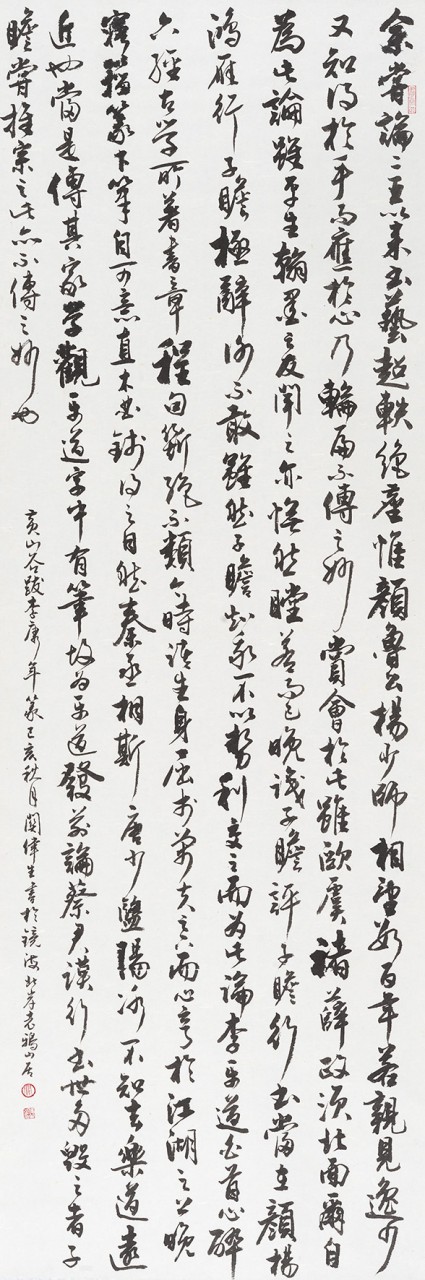 余嘗論二王以來書藝超軼絕塵惟顏魯公楊少師相望數百年若親見逸少
又知得於手而應於心乃輪扁不傳之妙賞會於此雖歐虞褚薛政須北面爾自
為此論雖平生翰墨之友聞之亦憮然瞠若而已晚識子瞻評子瞻行書當在顏楊
鴻雁行子瞻極辭謝不敢雖然子瞻知我不以勢利交之而為此論李樂道白首心醉
六經古學所著書章程句斷絕不類今時諸生身屈於萬夫之下而心亨於江湖之上晚
寤籀篆下筆自可意直木曲鐵得之自然秦丞相斯唐少監陽冰不知去樂道遠
近也當是傳其家學觀樂道字中有筆故為樂道發前論蔡君謨行書世多毀之者子
瞻嘗推宗之此亦不傳之妙也
黃山谷跋李康年篆己亥秋月關偉生書於鏡波北岸老鴉山居